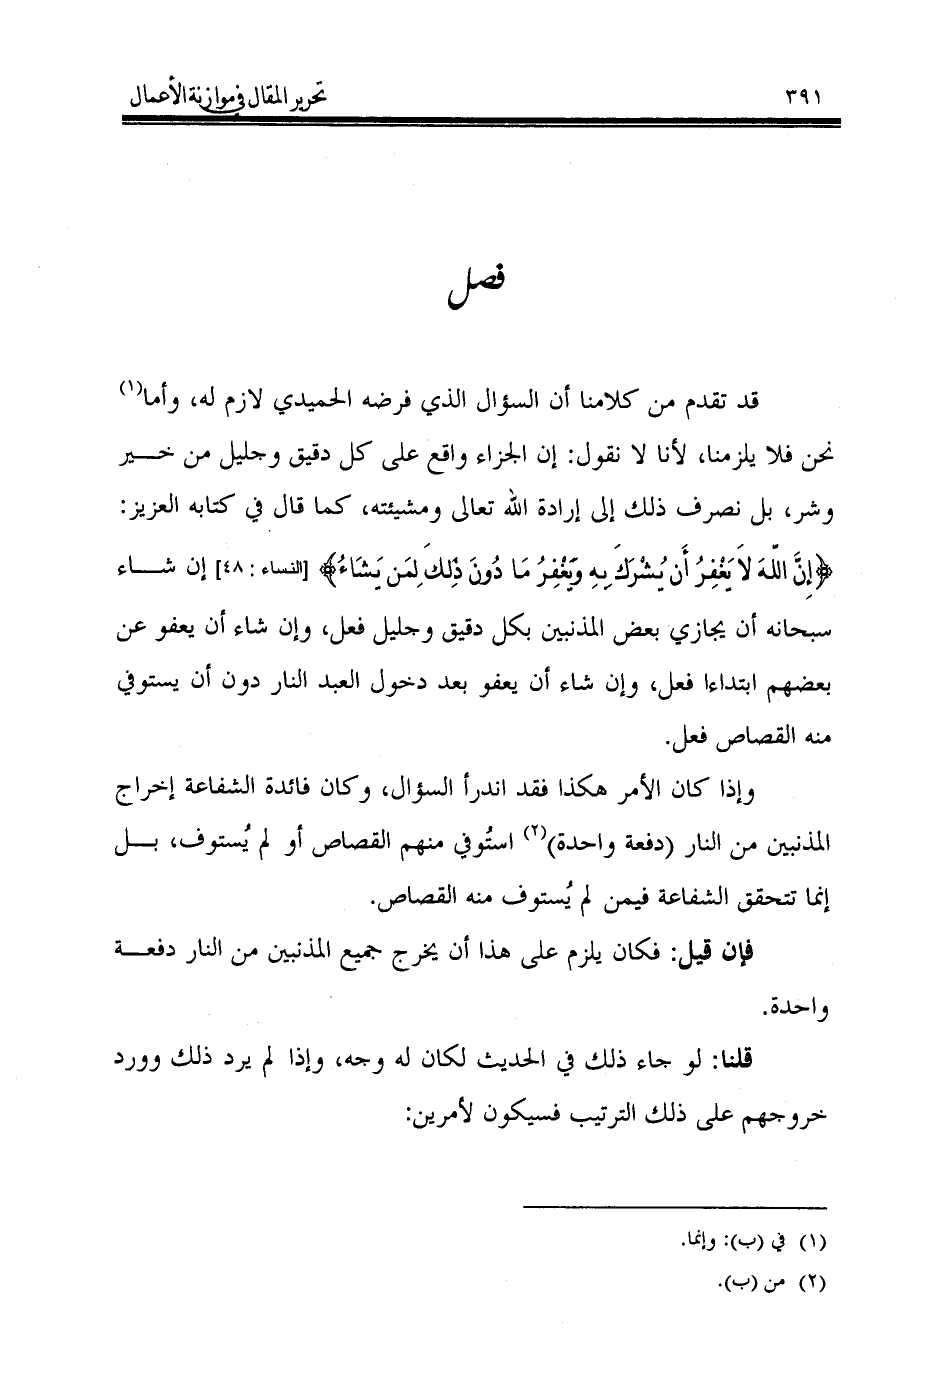 ٣٩١ تحرير المقال في موازنة الأعمال
فصل
قد تقدم من كلامنا أن السؤال الذي فرضه الحميدي لازم له، وأما(١)
نحن فلا يلزمنا، لأنا لا نقول: إن الجزاء واقع على كل دقيق وجليل من خـــير
وشر، بل نصرف ذلك إلى إرادة الله تعالى ومشيئته، كما قال في كتابه العزيز:
﴿إِنَّ اللَّهَ لَا يَغْفِرُ أَن يُشْرَكَ بِهِ وَيَغْفِرُ مَا دُونَ ذَٰلِكَ لِمَن يَشَاءُ﴾ [النساء : ٤٨] إن شـــاء
سبحانه أن يجازي بعض المذنبين بكل دقيق وجليل فعل، وإن شاء أن يعفو عن
بعضهم ابتداءا فعل، وإن شاء أن يعفو بعد دخول العبد النار دون أن يستوفي
منه القصاص فعل.
وإذا كان الأمر هكذا فقد اندرأ السؤال، وكان فائدة الشفاعة إخراج
المذنبين من النار (دفعة واحدة)(٢) استُوفي منهم القصاص أو لم يُستوف، بـــل
إنما تتحقق الشفاعة فيمن لم يُستوف منه القصاص.
فإن قيل: فكان يلزم على هذا أن يخرج جميع المذنبين من النار دفعـــة
واحدة.
قلنا: لو جاء ذلك في الحديث لكان له وجه، وإذا لم يرد ذلك وورد
خروجهم على ذلك الترتيب فسيكون لأمرين:
(١) في (ب): وإنما.
(٢) من (ب).